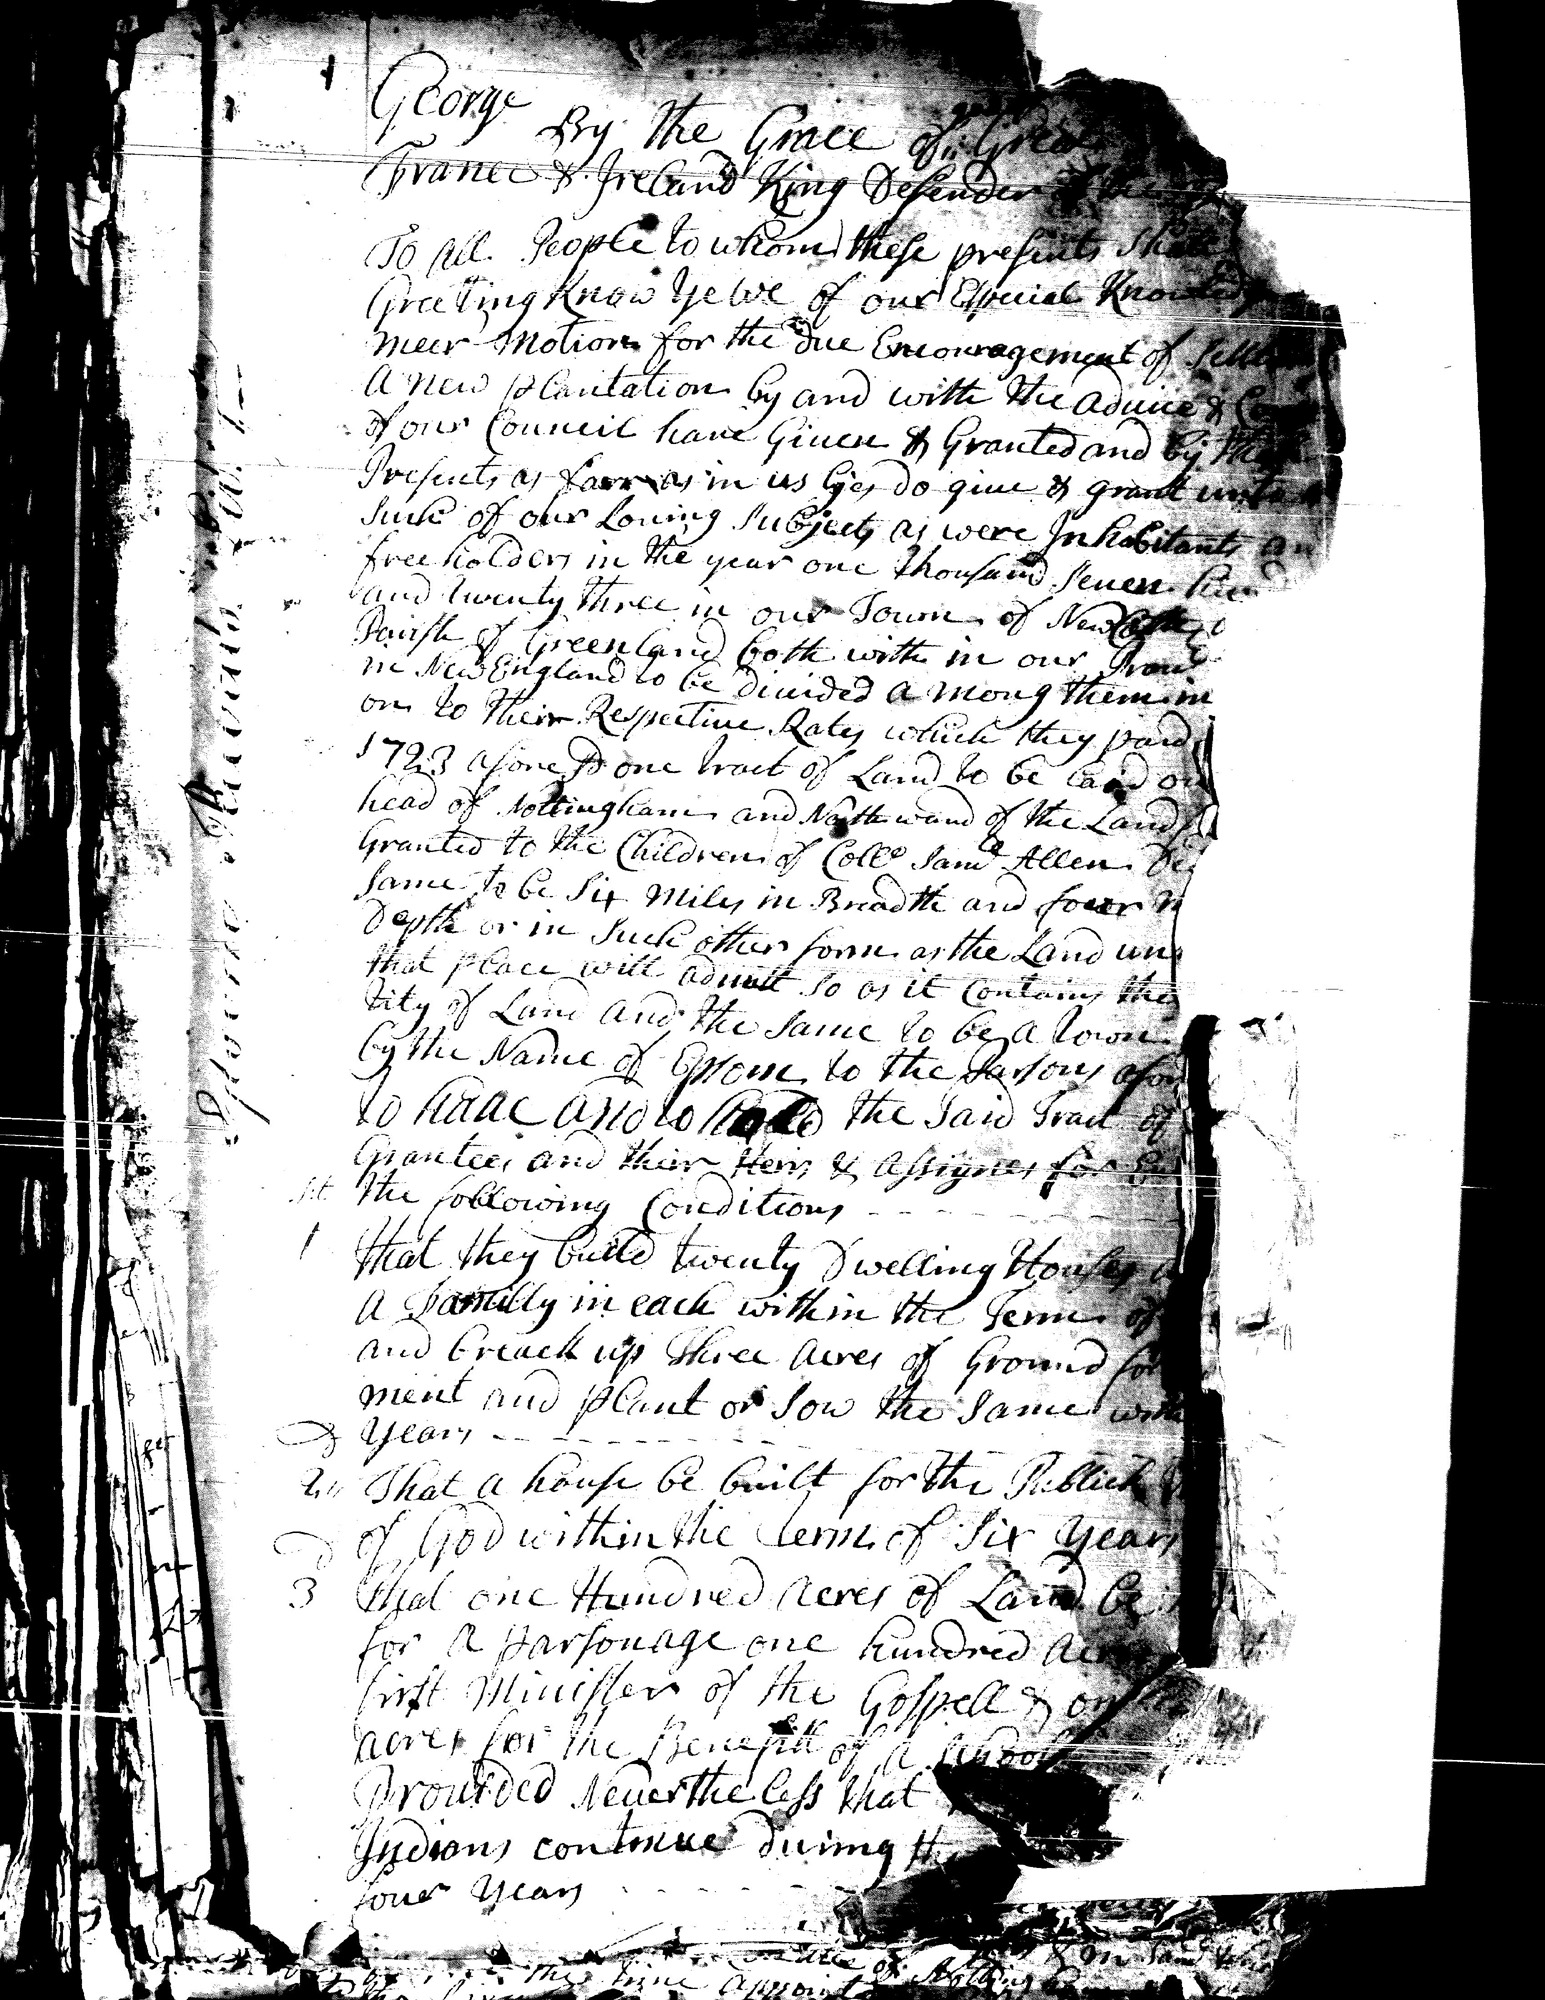 George
By the Grace of Great
France & Ireland King Defender of the
To all People to whom these presents Shall
Greeting Know Ye We of our Especial Knowledge
meer Motion for the due Encouragement of Settling
A new plantation by and with the Advice & Con
of our Council have Given & Granted and by these
Presents as farr as in us lyes do give & grant unto
Such of our Loving Subjects as were Inhabitants an
free holders in the year one thousand Seven hun
and twenty three in our Town of NewCastle
Parish of Greenland both with in our Prov
in New England to be divided a mong them in
on to their Respective Rates which they paid
1723 afore sd one tract of Land to be laid out
head of Nottingham and Northward of the Land
Granted to the Children of Collo Samll Allen De
Same to be Six Miles in Breadth and fower M
Depth or in Such other form as the Land un
that place will admitt So as it Contains the
tity of Land and the Same to be a town
by the Name of Epsom to the Parsons afor
to have and to hold the Said Tract of
Grantees and their Heirs & Assignes for Ev
the following Conditions
1 that they build twenty Dwelling Houses
a Familly in each within the Term of
and breack up three acres of Ground for
ment and plant or Sow the Same with
Years
2 That a house be built for the Publick
of God within the term of Six Years
3 that one Hundred acres of Land be
for a parsonage one hundred acres
first Minister of the Gospell & on
acres for the Benefitt of a School
Provided Neverthe less that
Indians continue during th
four Years
the time appoint